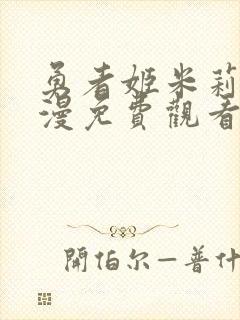 勇者姬米莉
漫免費觀看
開伯尔—普什